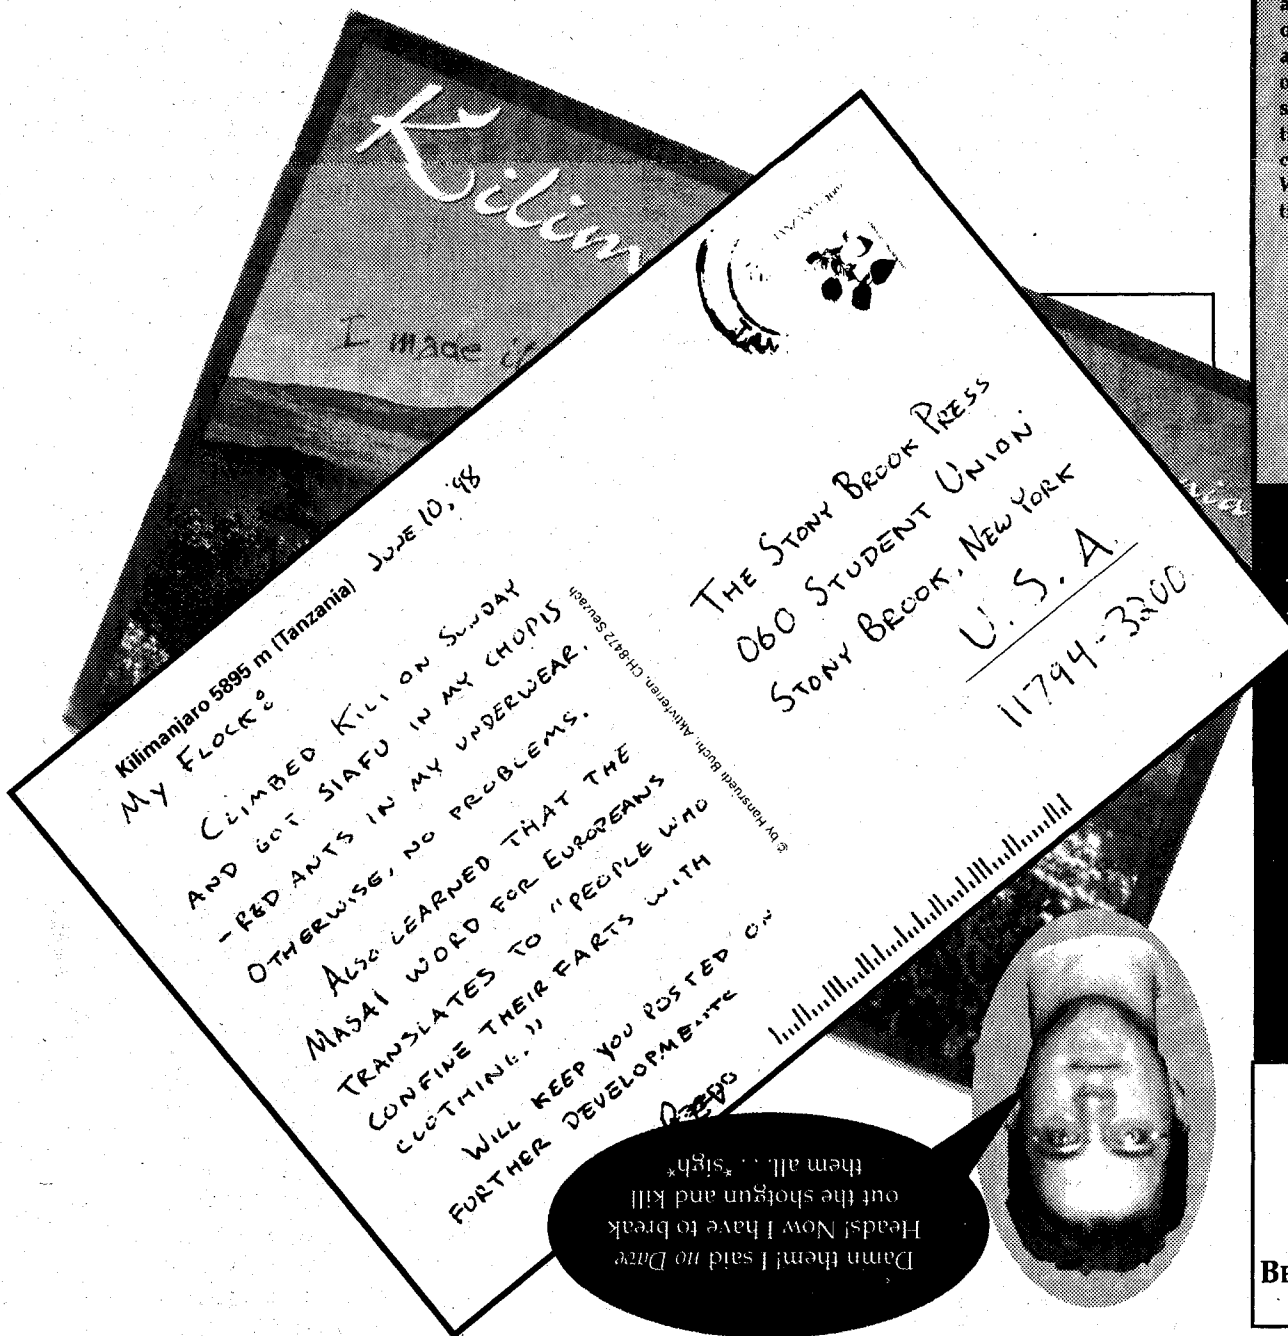 Kilim
I made it
nia
Kilimanjaro 5895 m (Tanzania) JUNE 10, '98
MY FLOCK:
CLIMBED KILI ON SUNDAY
AND GOT SIAFU IN MY CHOPIS
- RED ANTS IN MY UNDERWEAR.
OTHERWISE, NO PROBLEMS.
ALSO LEARNED THAT THE
MASAI WORD FOR EUROPEANS
TRANSLATES TO "PEOPLE WHO
CONFINE THEIR FARTS WITH
CLOTHING."
WILL KEEP YOU POSTED ON
FURTHER DEVELOPMENTS
© by Hansruedi Büchi, Aktivferien, CH-8472 Seuzach
THE STONY BROOK PRESS
060 STUDENT UNION
STONY BROOK, NEW YORK
U. S. A.
11794-3200
Damn them! I said no Dave
Heads! Now I have to break
out the shotgun and kill
them all. . . *sigh*
BE